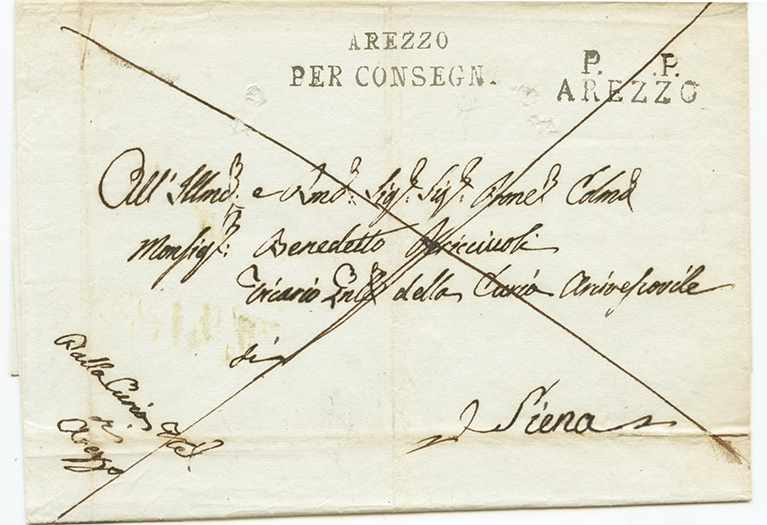 AREZZO
PER CONSEGN.
P. P.
AREZZO
All' Illmo: e Rmo: Sigr: Sigr: Prone Colmo
Monsigr: Benedetto
Vicario Gnle della Curia Arcivescovile
di
Siena
Dalla Curia Vesl.
di
Arezzo